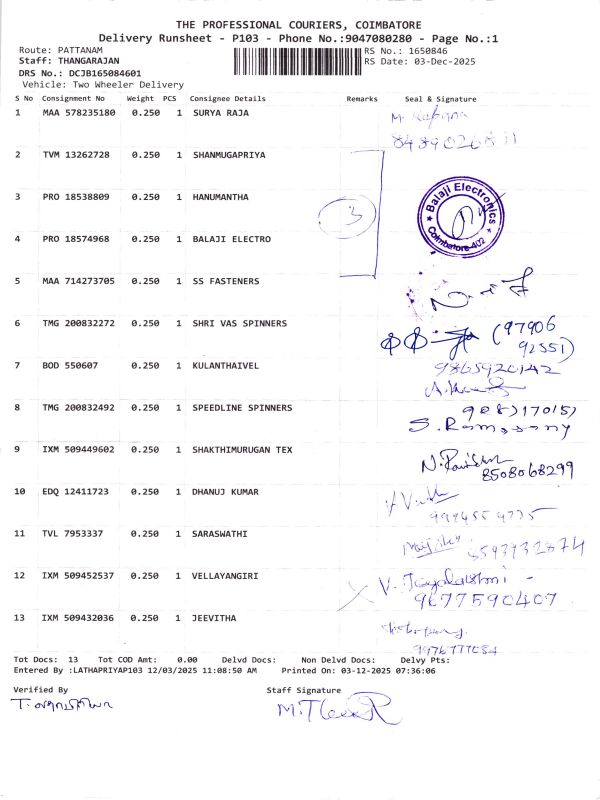 THE PROFESSIONAL COURIERS, COIMBATORE
Delivery Runsheet - P103 - Phone No.:9047080280 - Page No.:1
Route: PATTANAM RS No.: 1650846
Staff: THANGARAJAN RS Date: 03-Dec-2025
DRS No.: DCJB165084601
Vehicle: Two Wheeler Delivery
S No Consignment No Weight PCS Consignee Details Remarks Seal & Signature
1 MAA 578235180 0.250 1 SURYA RAJA
2 TVM 13262728 0.250 1 SHANMUGAPRIYA
3 PRO 18538809 0.250 1 HANUMANTHA
3
Balaji Electronics
Coimbatore-402
4 PRO 18574968 0.250 1 BALAJI ELECTRO
5 MAA 714273705 0.250 1 SS FASTENERS
6 TMG 200832272 0.250 1 SHRI VAS SPINNERS
(97906
92551)
7 BOD 550607 0.250 1 KULANTHAIVEL 9865920142
8 TMG 200832492 0.250 1 SPEEDLINE SPINNERS
S. Ramasamy
9 IXM 509449602 0.250 1 SHAKTHIMURUGAN TEX
8508068299
10 EDQ 12411723 0.250 1 DHANUJ KUMAR
11 TVL 7953337 0.250 1 SARASWATHI
12 IXM 509452537 0.250 1 VELLAYANGIRI V. Jayalakshmi -
9677590407
13 IXM 509432036 0.250 1 JEEVITHA
9976777084
Tot Docs: 13 Tot COD Amt: 0.00 Delvd Docs: Non Delvd Docs: Delvy Pts:
Entered By :LATHAPRIYAP103 12/03/2025 11:08:50 AM Printed On: 03-12-2025 07:36:06
Verified By Staff Signature